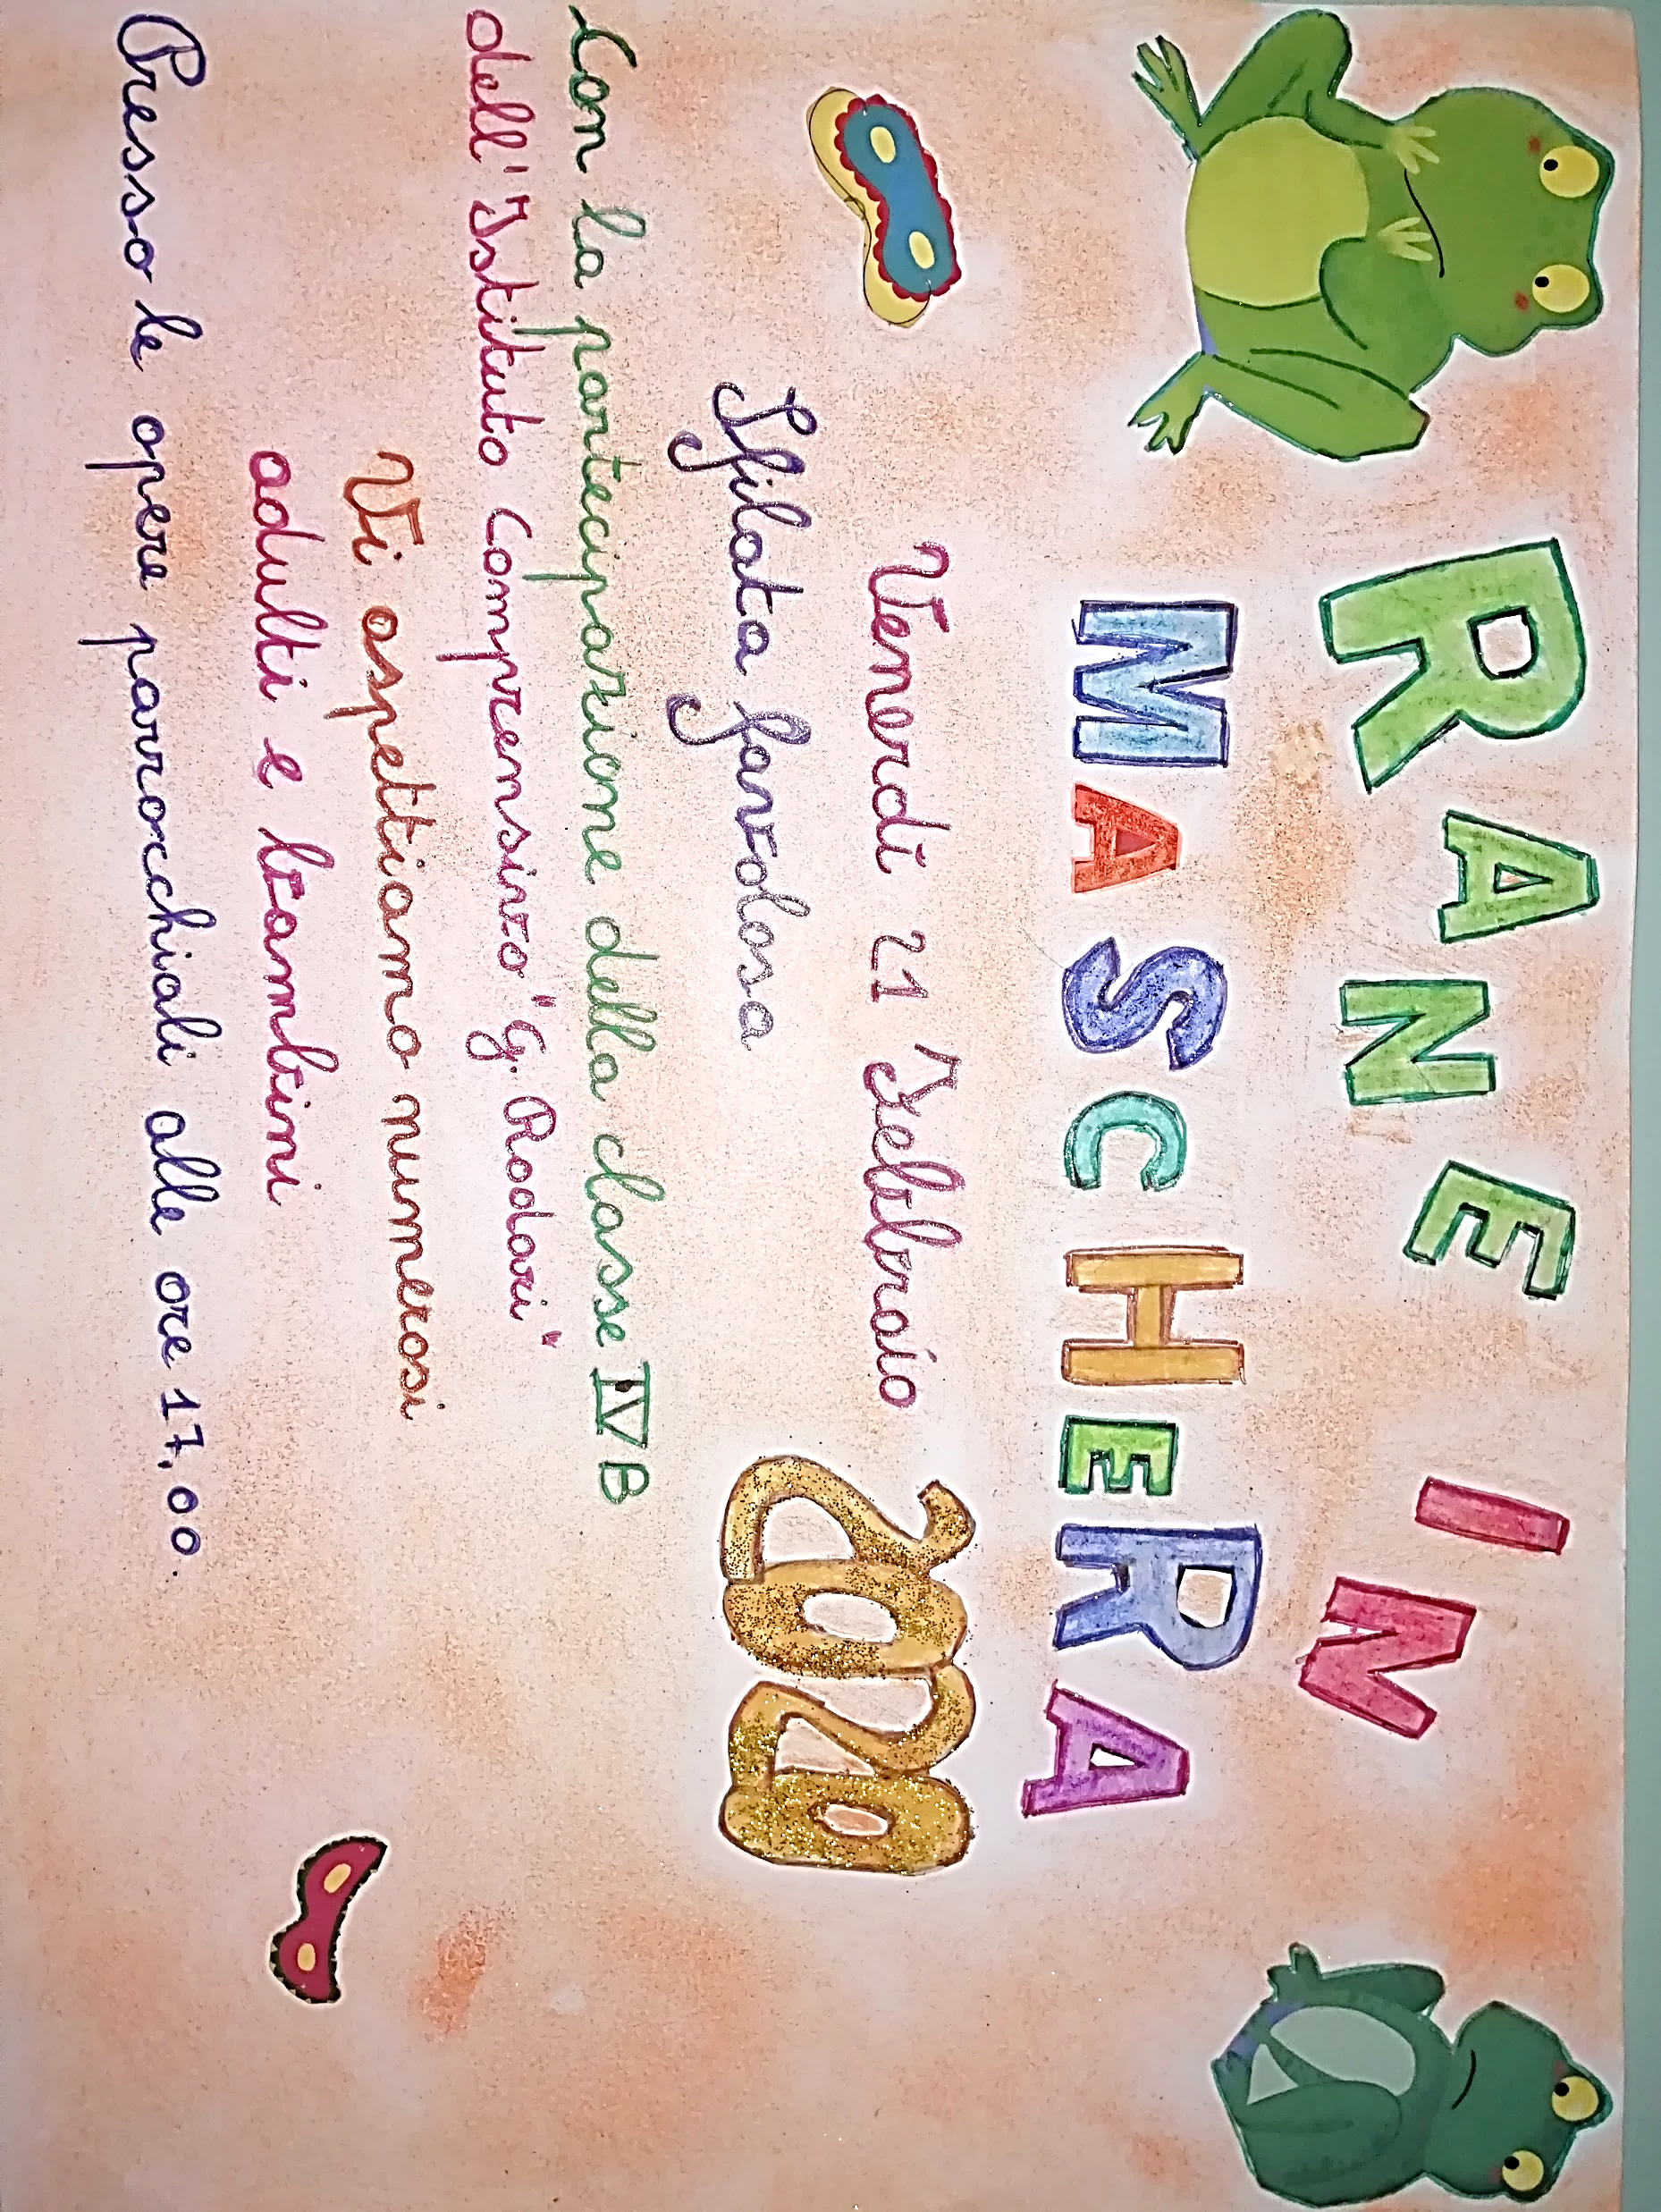 RANE IN
MASCHERA
Venerdì 21 Febbraio
2020
Sfilata favolosa
Con la partecipazione della classe IV B
dell'Istituto Comprensivo "G. Rodari"
Vi aspettiamo numerosi
adulti e bambini
Presso le opere parrocchiali alle ore 17,00.